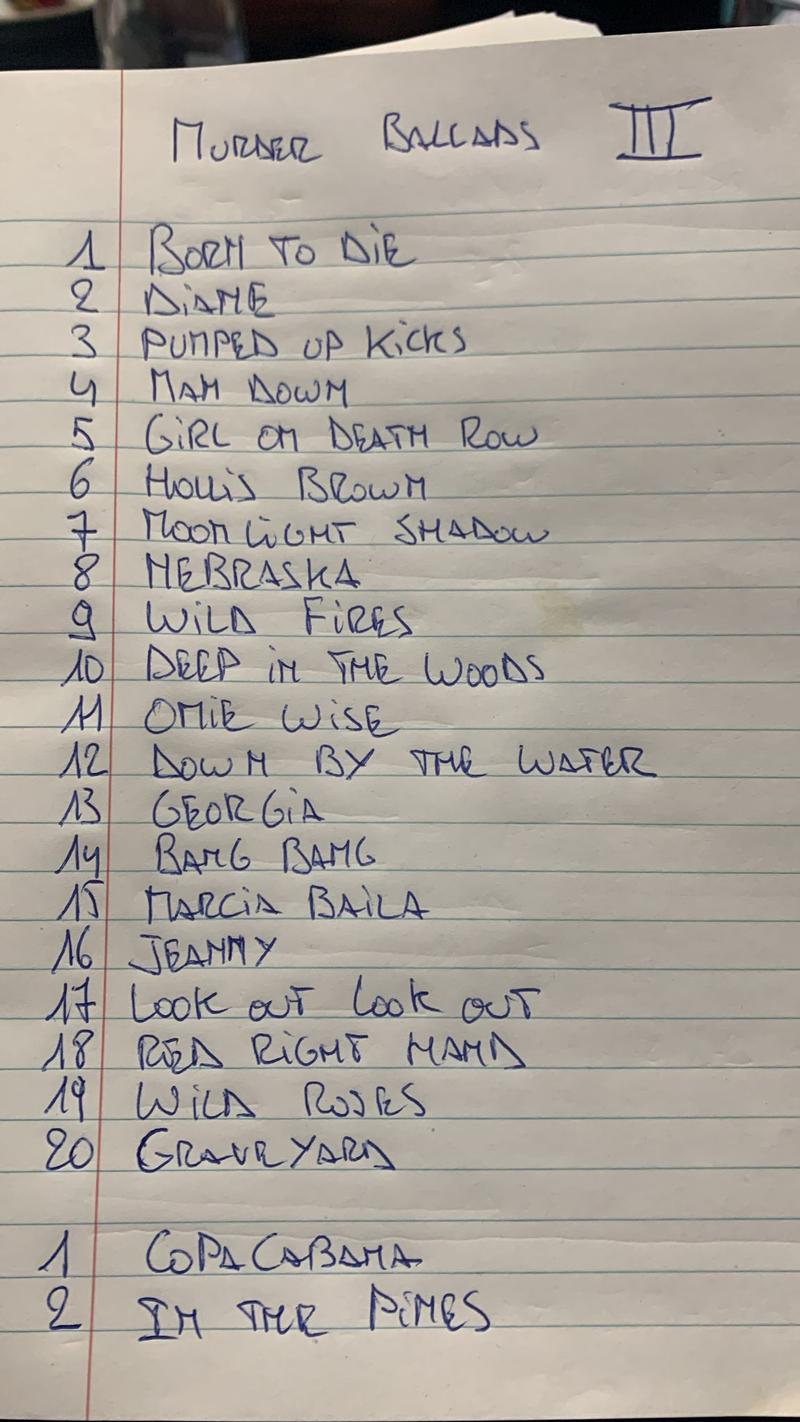 MURDER BALLADS III
1 BORN TO DIE
2 DIANE
3 PUMPED UP KICKS
4 MAN DOWN
5 GIRL ON DEATH ROW
6 HOLLIS BROWN
7 MOONLIGHT SHADOW
8 NEBRASKA
9 WILD FIRES
10 DEEP IN THE WOODS
11 OMIE WISE
12 DOWN BY THE WATER
13 GEORGIA
14 BANG BANG
15 MARCIA BAILA
16 JEANNY
17 LOOK OUT LOOK OUT
18 RED RIGHT HAND
19 WILD ROSES
20 GRAVEYARD
1 COPACABANA
2 IN THE PINES